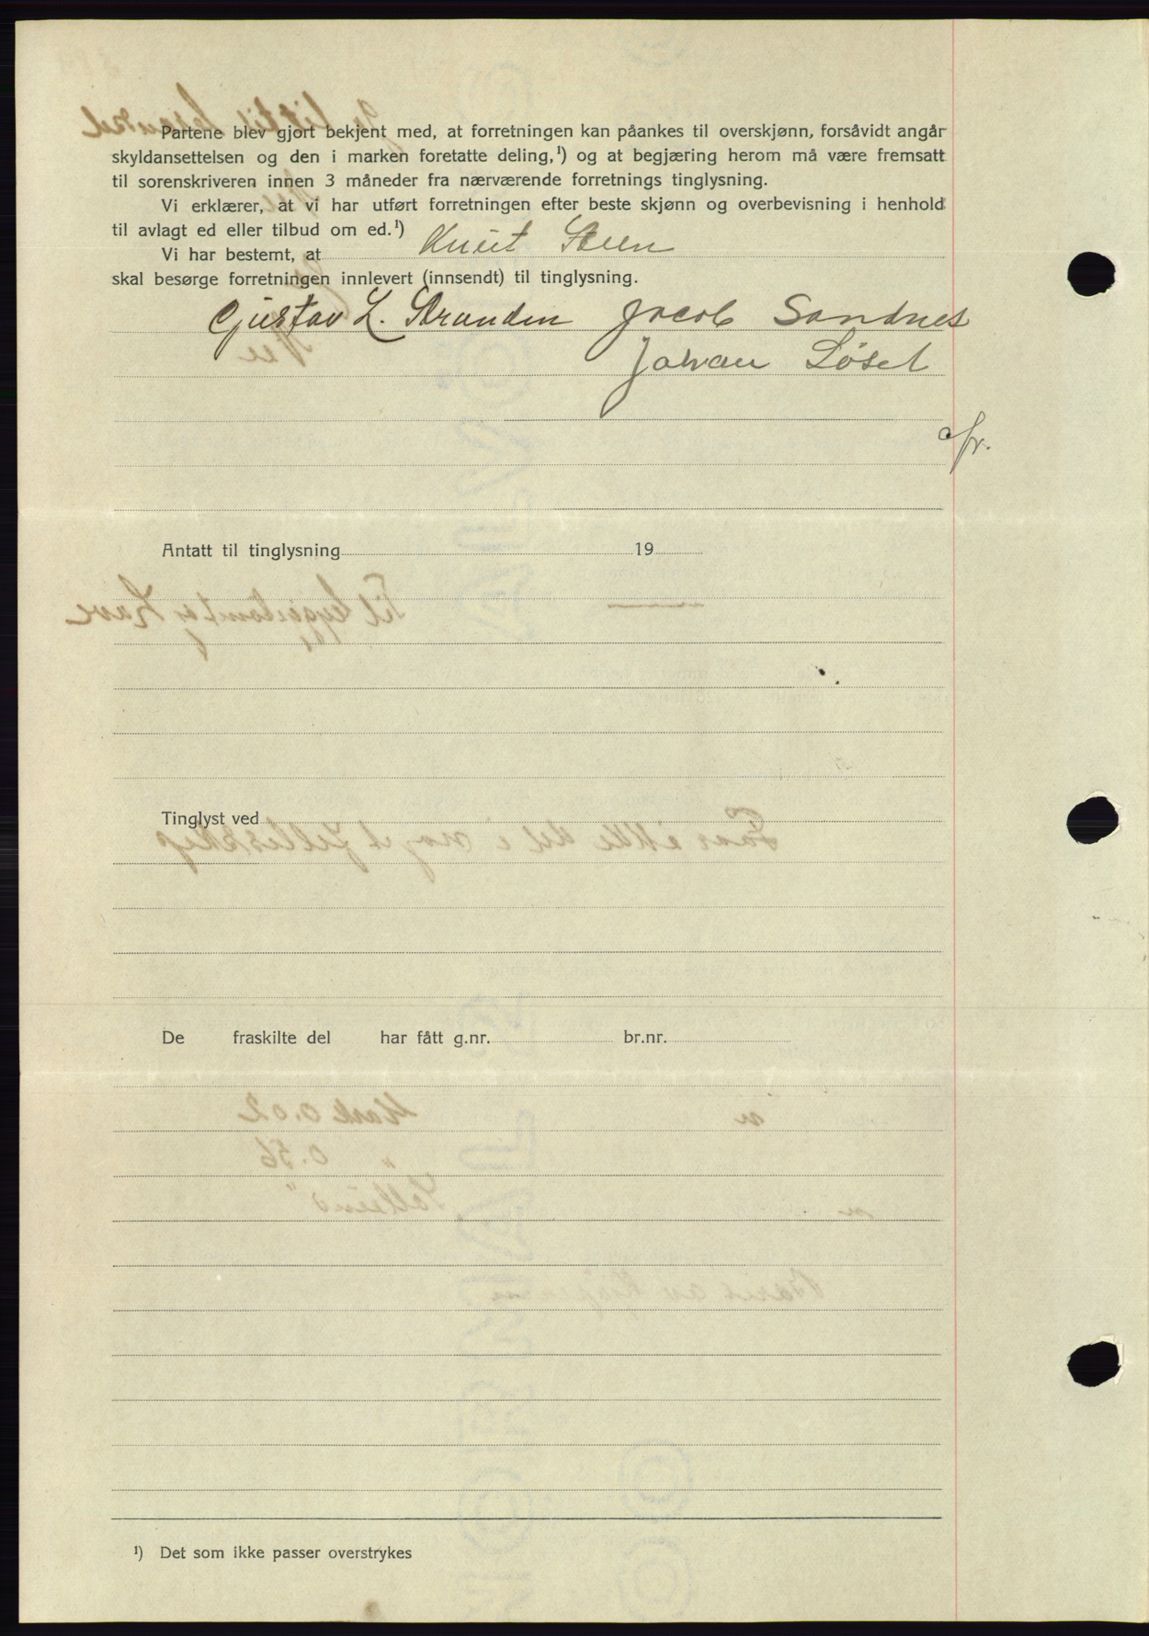 Partene blev gjort bekjent med, at forretningen kan påankes til overskjønn, forsåvidt angår
skyldansettelsen og den i marken foretatte deling,¹) og at begjæring herom må være fremsatt
til sorenskriveren innen 3 måneder fra nærværende forretnings tinglysning.
Vi erklærer, at vi har utført forretningen efter beste skjønn og overbevisning i henhold
til avlagt ed eller tilbud om ed.¹)
Vi har bestemt, at Knut Steen
skal besørge forretningen innlevert (innsendt) til tinglysning.
Gustav L. Stranden Jacob Sandnes
Johan Løset
afr.
Antatt til tinglysning 19
Tinglyst ved
De fraskilte del har fått g.nr. br.nr.
¹) Det som ikke passer overstrykes